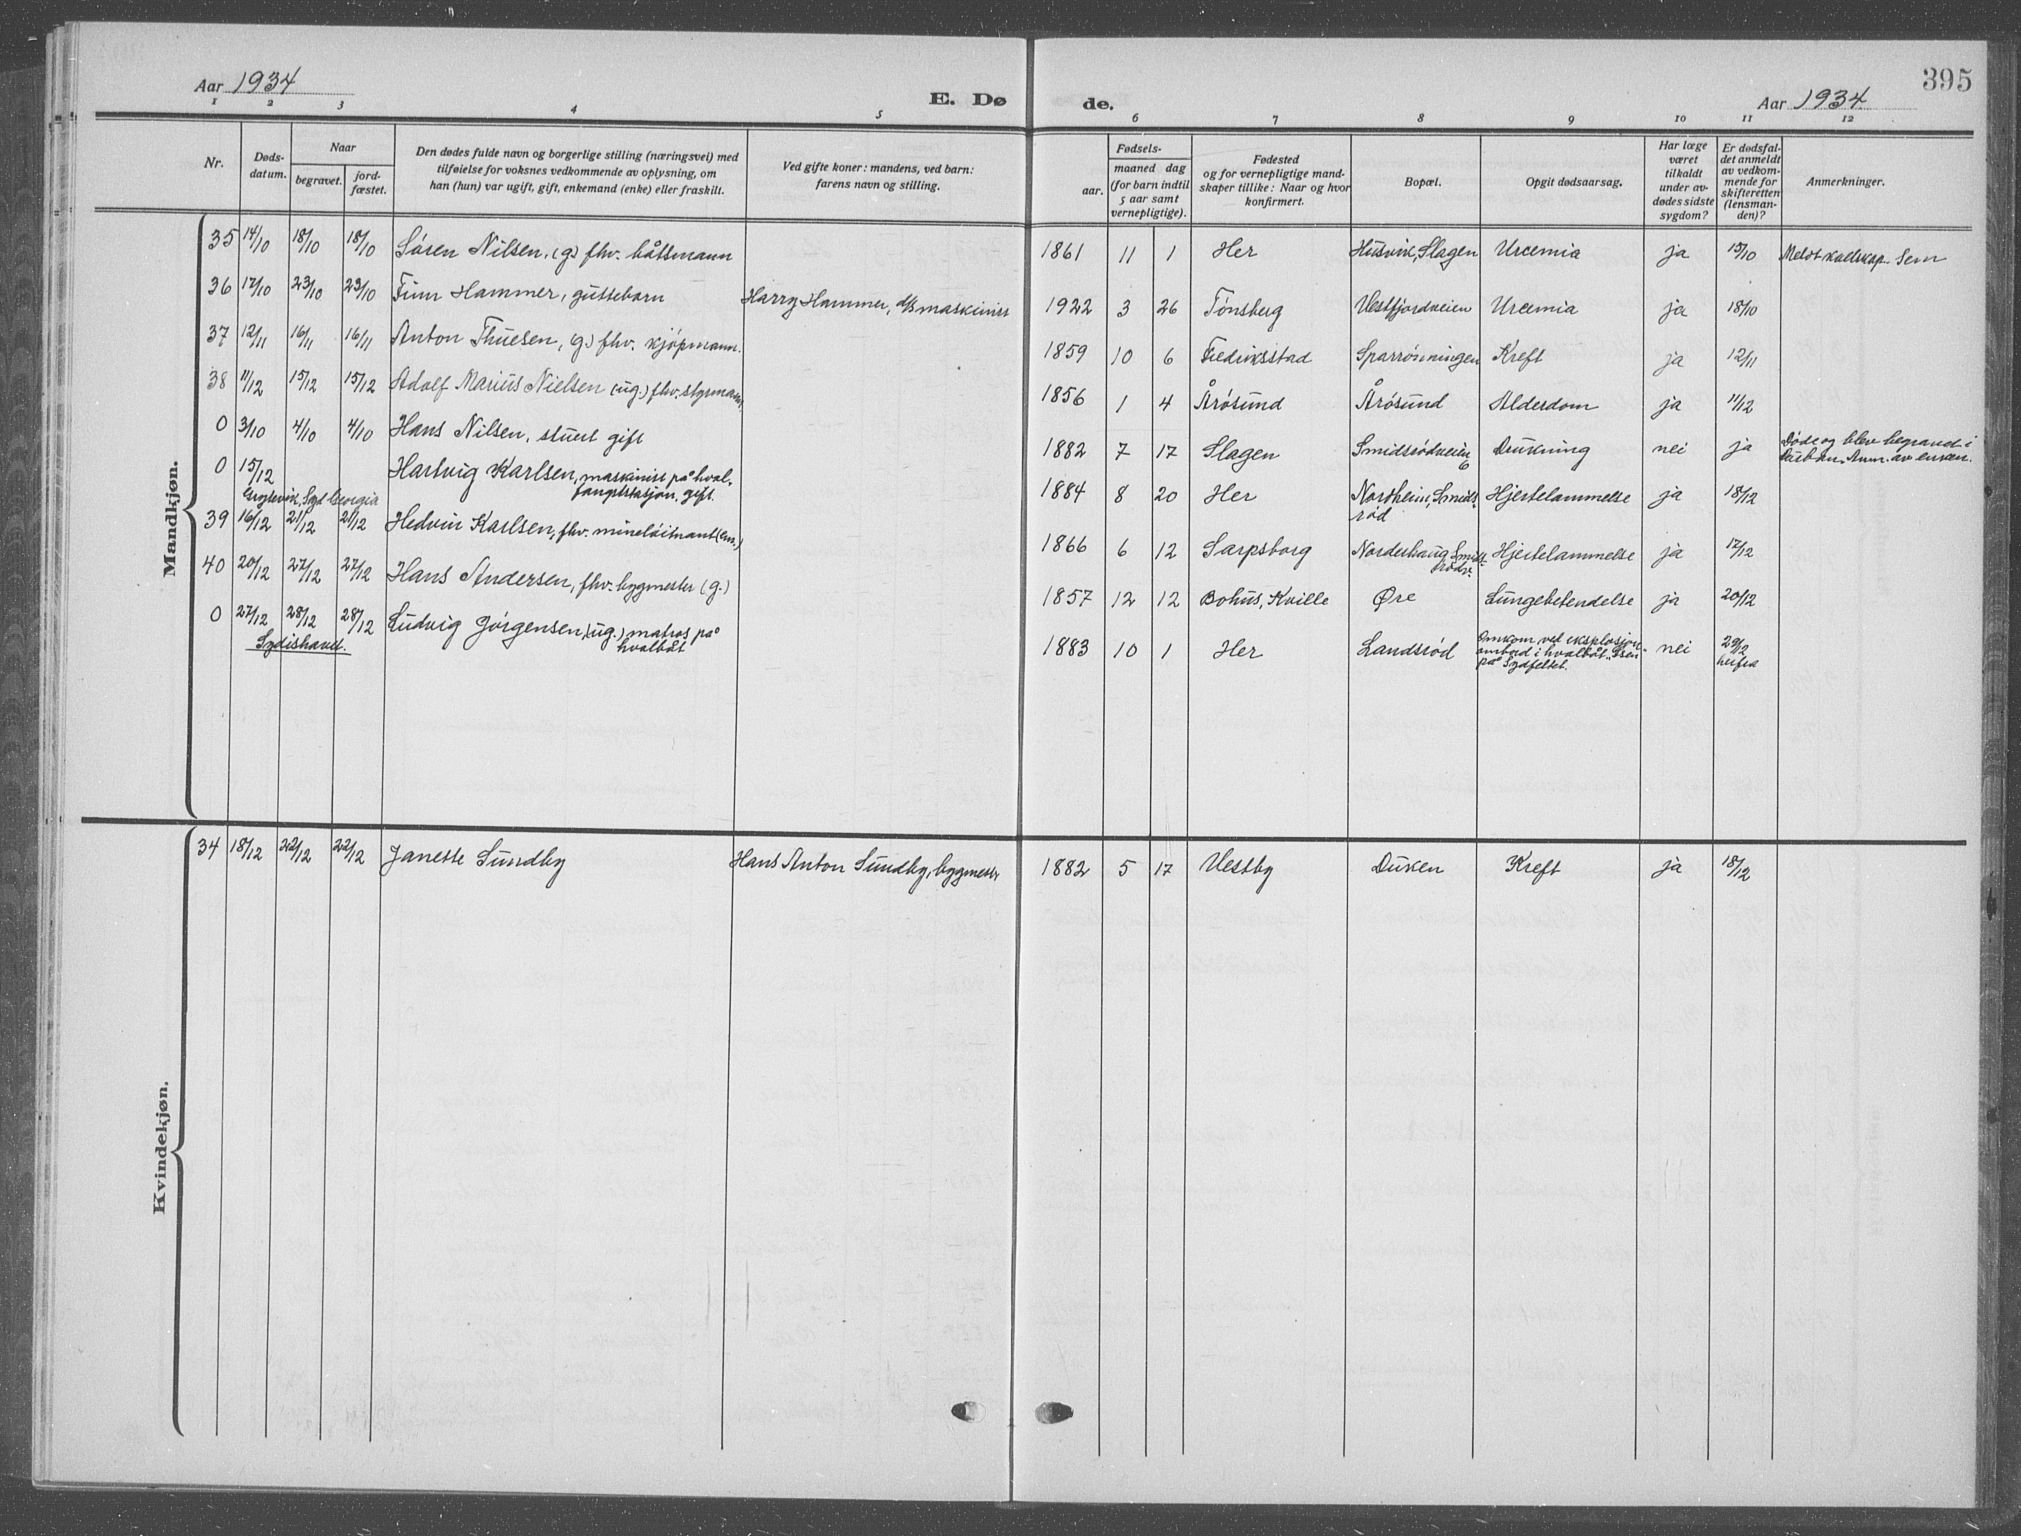 395
Aar 1934
E. Døde.
Aar 1934
1 2 3 4 5 6 7 8 9 10 11 12
Nr.
Døds-
datum.
Naar
begravet.
jord-
fæstet.
Den dødes fulde navn og borgerlige stilling (næringsvei) med
tilføielse for voksnes vedkommende av oplysning, om
han (hun) var ugift, gift, enkemand (enke) eller fraskilt.
Ved gifte koner: mandens, ved barn:
farens navn og stilling.
Fødsels-
aar.
maaned dag
(for barn indtil
5 aar samt
vernepligtige).
Fødested
og for vernepligtige mand-
skaper tillike: Naar og hvor
konfirmert.
Bopæl.
Opgit dødsaarsag.
Har læge
været
tilkaldt
under av-
dødes sidste
sygdom?
Er dødsfal-
det anmeldt
av vedkom-
mende for
skifteretten
(lensman-
den)?
Anmerkninger.
Mandkjøn.
35 14/10 18/10 18/10 Søren Nilsen, (g) fhv. båttsmann 1861 11 1 Her Husvik, Slagen Uræmia ja 15/10 Meldt kallskap. Sem
36 17/10 23/10 23/10 Finn Hammer, guttebarn Harry Hammer, d/s maskinist 1922 3 26 Tønsberg Vestfjordveien Uræmia ja 18/10
37 12/11 16/11 16/11 Anton Thuesen, (g.) fhv. kjøpmann. 1859 10 6 Fredriksstad Sparrønningen Kreft ja 12/11
38 11/12 15/12 15/12 Adolf Marius Nielsen (ug.) fhv. styrmann. 1856 1 4 Årøsund Årøsund Alderdom ja 11/12
0 3/10 4/10 4/10 Hans Nilsen, stuert gift 1882 7 17 Slagen Smidsrødveien 6 Drukning nei ja Døde og blev begravd i
Durban. Anm. av enken.
0 15/12 Hartvig Karlsen, maskinist på hval-
fangststasjon, gift. 1884 8 20 Her Nordheim, Smids-
rød Hjertelammelse ja 18/12
Grytevik, Syd Georgia
39 16/12 21/12 21/12 Hedvin Karlsen, fhv. mineløitnant (em.) 1866 6 12 Sarpsborg Norderhaug Smids-
rødv. Hjertelammelse ja 17/12
40 20/12 27/12 27/12 Hans Andersen, fhv. bygmester (g.) 1857 12 12 Bohus, Kville Øre Lungebetendelse ja 20/12
0 27/12 28/12 28/12 Ludvig Jørgensen, (ug.) matros på
hvalbåt 1883 10 1 Her Landsrød Omkom ved eksplosjon
ombord i hvalbåt
på Sydfeltet. nei 29/12
herfra
Sydishavet.
Kvindekjøn.
34 18/12 22/12 22/12 Janette Sundby Hans Anton Sundby, bygmester 1882 5 17 Vestby Duken Kreft ja 18/12